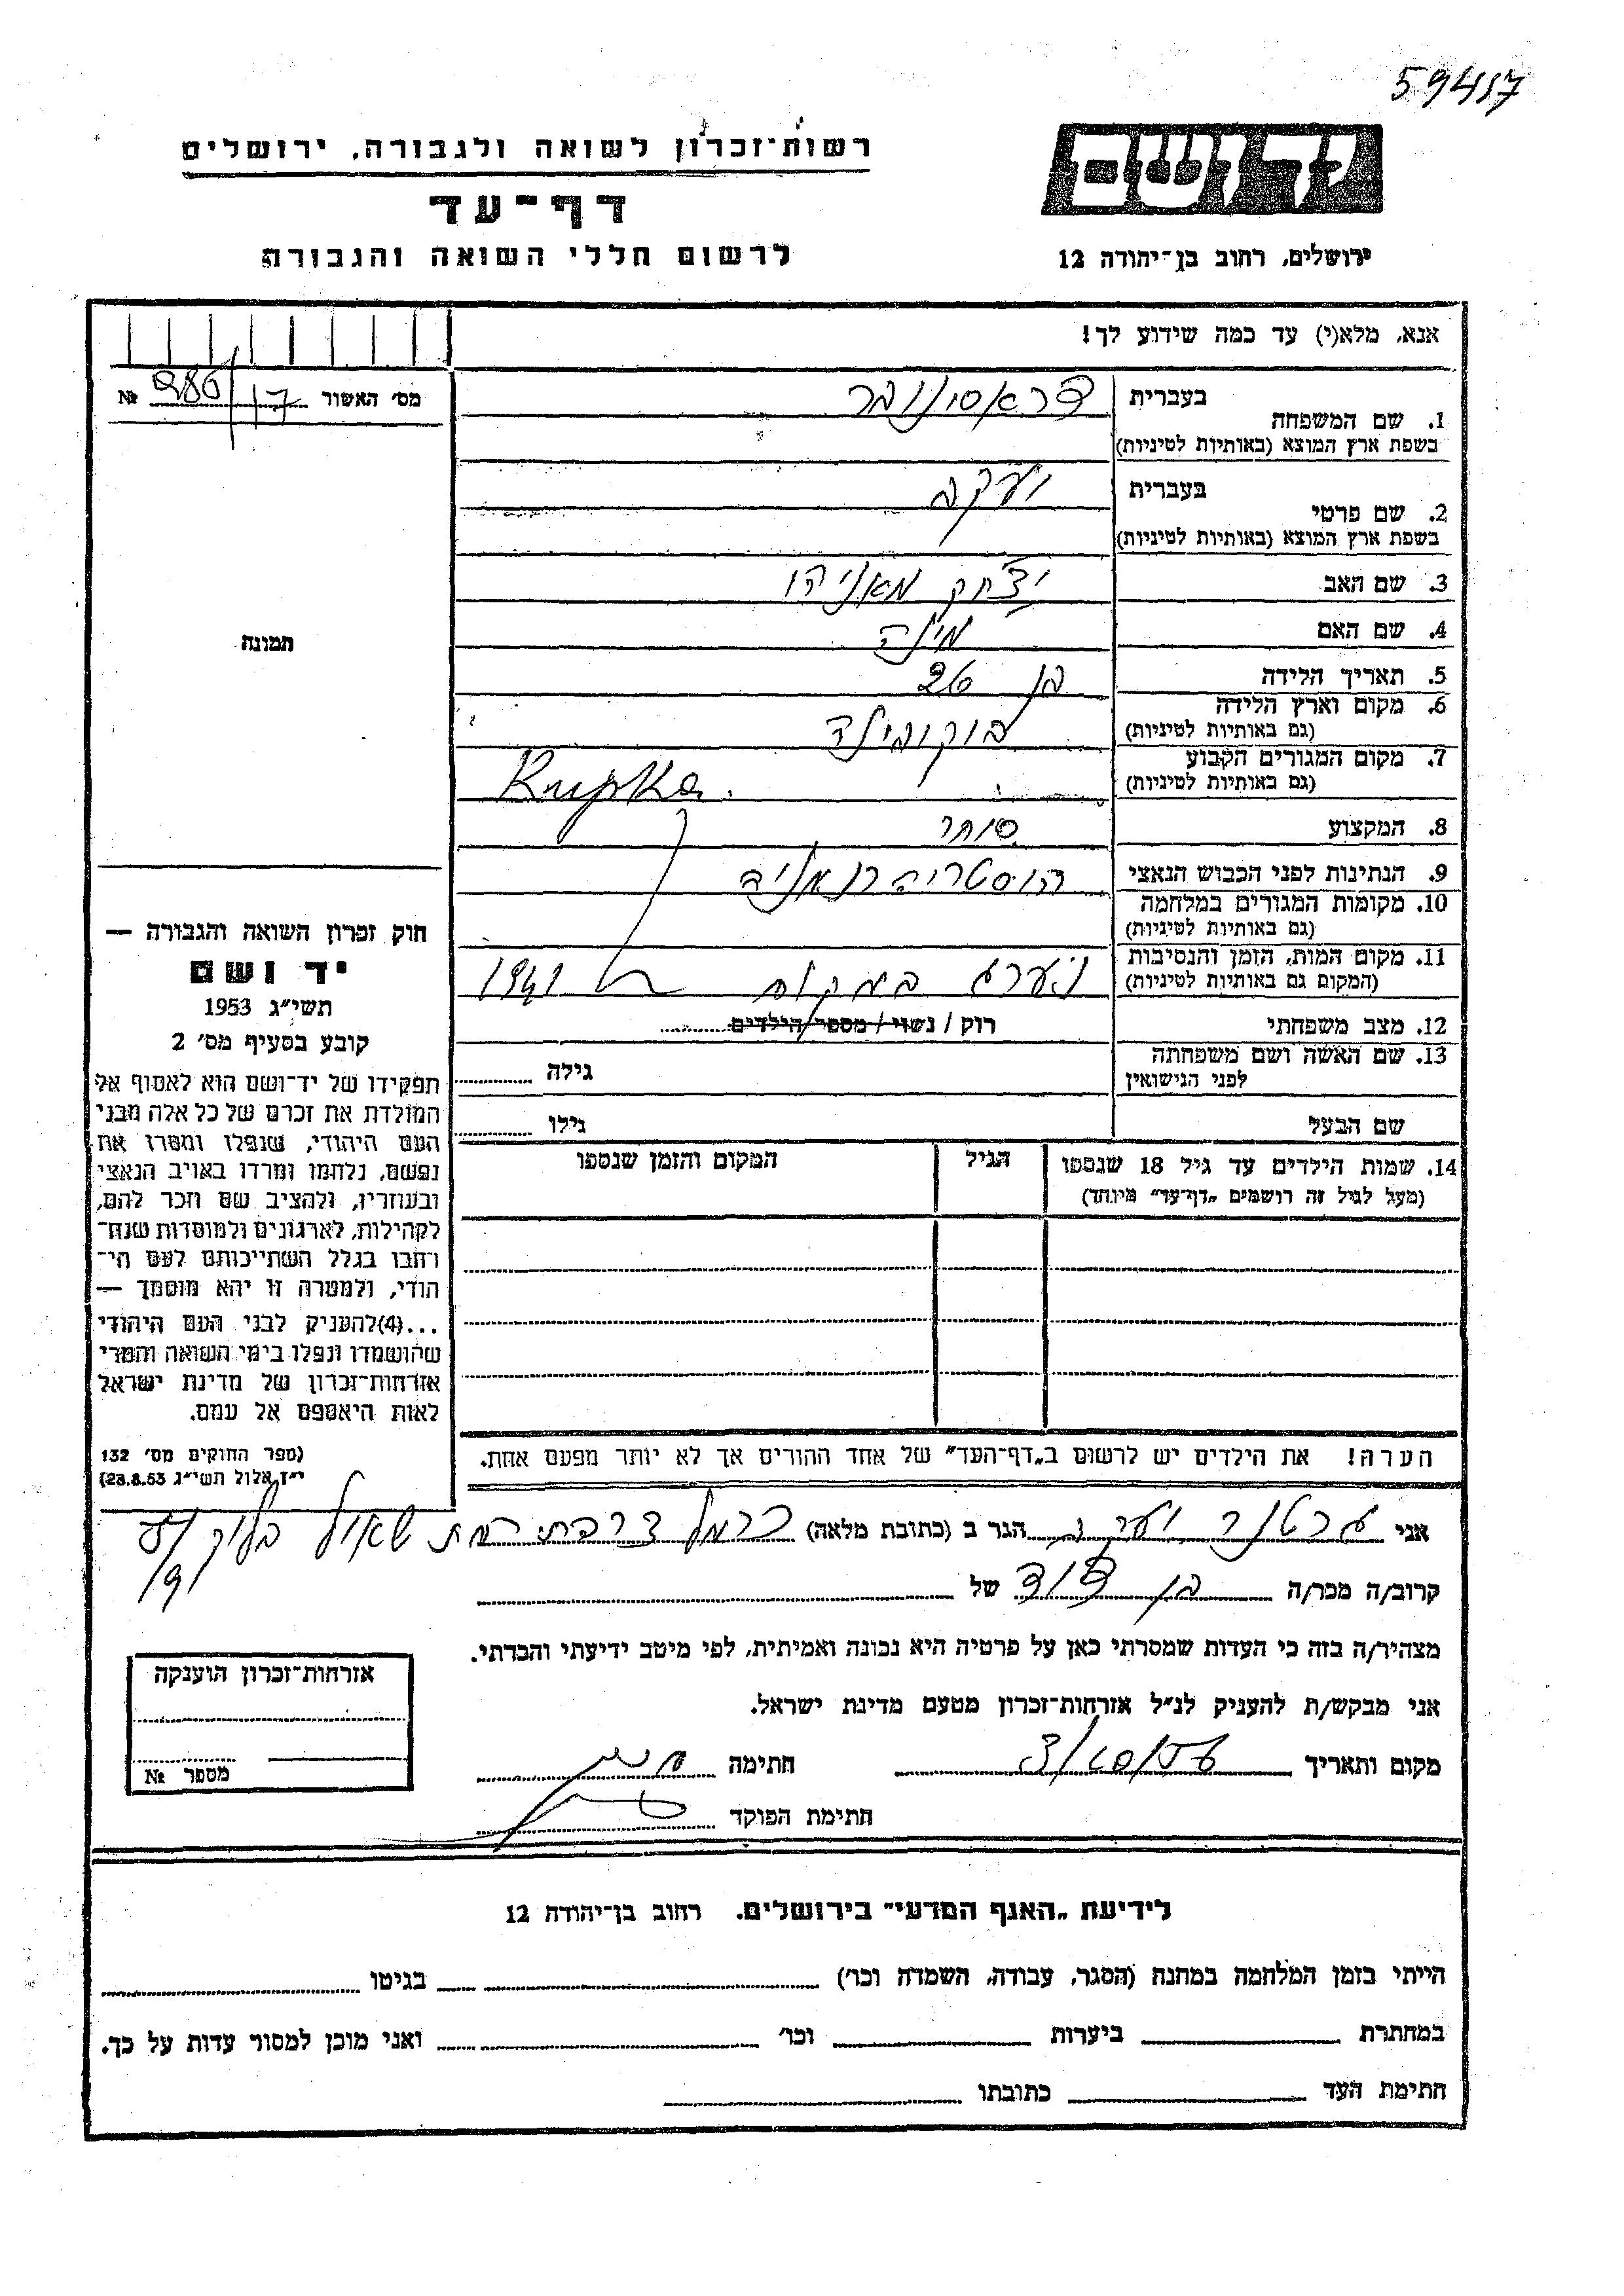 59417
רשות־זכרון לשואה ולגבורה, ירושלים
דף־עד
לרשום חללי השואה והגבורה
יד ושם
ירושלים, רחוב בן־יהודה 12
אנא, מלא(י) עד כמה שידוע לך!
מס׳ האשור № 286/17
תמונה
1. שם המשפחה
בעברית
בשפת ארץ המוצא (באותיות לטיניות)
2. שם פרטי
בעברית יעקב
בשפת ארץ המוצא (באותיות לטיניות)
3. שם האב יצחק
4. שם האם מינה
5. תאריך הלידה בן 26
6. מקום וארץ הלידה
(גם באותיות לטיניות)
7. מקום המגורים הקבוע Rupka
(גם באותיות לטיניות)
8. המקצוע סוחר
9. הנתינות לפני הכבוש הנאצי
10. מקומות המגורים במלחמה
(גם באותיות לטיניות)
11. מקום המות, הזמן והנסיבות במקום 1941
(המקום גם באותיות לטיניות)
12. מצב משפחתי רוק / נשוי / מספר הילדים
13. שם האשה ושם משפחתה גילה
לפני הנישואין
שם הבעל גילו
14. שמות הילדים עד גיל 18 שנספו הגיל המקום והזמן שנספו
(מעל לגיל זה רושמים „דף־עד” מיוחד)
הערה! את הילדים יש לרשום ב„דף־העד” של אחד ההורים אך לא יותר מפעם אחת.
חוק זכרון השואה והגבורה —
יד ושם
תשי״ג 1953
קובע בסעיף מס׳ 2
תפקידו של יד־ושם הוא לאסוף אל
המולדת את זכרם של כל אלה מבני
העם היהודי, שנפלו ומסרו את
נפשם, נלחמו ומרדו באויב הנאצי
ובעוזריו, ולהציב שם וזכר להם,
לקהילות, לארגונים ולמוסדות שנח־
רחבו בגלל השתייכותם לעם הי־
הודי, ולמטרה זו יהא מוסמך —
...(4)להעניק לבני העם היהודי
שהושמדו ונפלו בימי השואה והמרי
אזרחות־זכרון של מדינת ישראל
לאות היאספם אל עמם.
(ספר החוקים מס׳ 132
י״ז אלול תשי״ג 28.8.53)
אני יעקב הגר ב (כתובת מלאה)
קרוב/ה מכר/ה בן דוד של
מצהיר/ה בזה כי העדות שמסרתי כאן על פרטיה היא נכונה ואמיתית, לפי מיטב ידיעתי והכרתי.
אני מבקש/ת להעניק לנ״ל אזרחות־זכרון מטעם מדינת ישראל.
מקום ותאריך חתימה
חתימת הפוקד
אזרחות־זכרון הוענקה
מספר №
לידיעת „האגף המדעי” בירושלים. רחוב בן־יהודה 12
הייתי בזמן המלחמה במחנה (הסגר, עבודה, השמדה וכו׳) בגיטו
במחתרת ביערות וכו׳ ואני מוכן למסור עדות על כך.
חתימת העד כתובתו